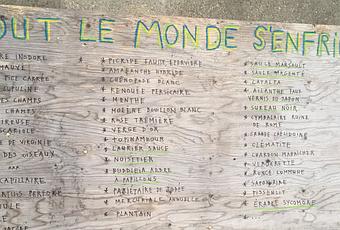 OUT LE MONDE S'ENFRI
RE INODORE
MAUVE
PIC CARRÉE
LUPULINE
ES CHAMPS
CHAMPS
IREUSE
SCARIOLE
DE VIRGINIE
DES OISEAUX
CAPILLAIRE
PERFORÉ
* PICRIDE FAUSSE ÉPERVIÈRE
* AMARANTHE HYBRIDE
* CHÉNOPODE BLANC
* RENOUÉE PERSICAIRE
* MENTHE
* MOLÈNE BOUILLON BLANC
* ROSE TRÉMIÈRE
* VERGE D'OR
* TOPINAMBOUR
* LAURIER SAUCE
* NOISETIER
* BUDDLEIA ARBRE
À PAPILLONS
* PARIÉTAIRE DE JUDÉE
* MERCURIALE ANNUELLE
* PLANTAIN
* SAULE MARSAULT
* SAULE ARGENTÉ
* CATALPA
* AILANTHE FAUX
VERNIS DU JAPON
* SUREAU NOIR
* CYMBALAIRE RUINE
DE ROME
* GRANDE CHÉLIDOINE
* CLÉMATITE
* CHARDON MARAÎCHER
* VERGERETTE
* RONCE COMMUNE
* SAPONAIRE
* PISSENLIT
* ÉRABLE SYCOMORE
* ...